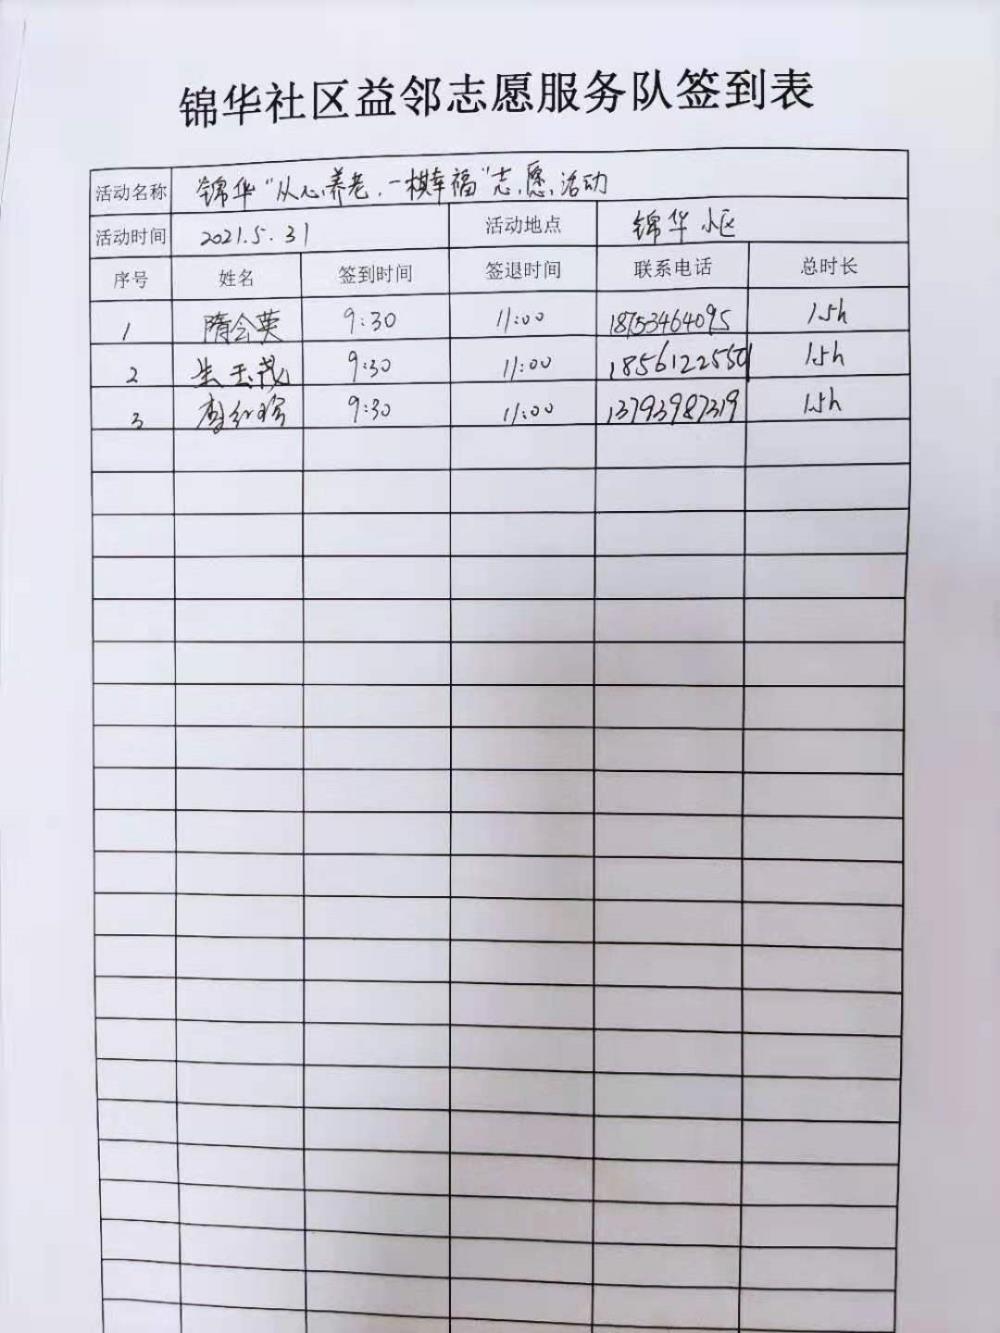 锦华社区益邻志愿服务队签到表
活动名称 锦华“从心养老,一棋幸福”志愿活动
活动时间 2021.5.31 活动地点 锦华小区
序号 姓名 签到时间 签退时间 联系电话 总时长
1 隋会英 9:30 11:00 18753464095 1.5h
2 朱玉茂 9:30 11:00 1856122550 1.5h
3 李红珍 9:30 11:00 13793987319 1.5h